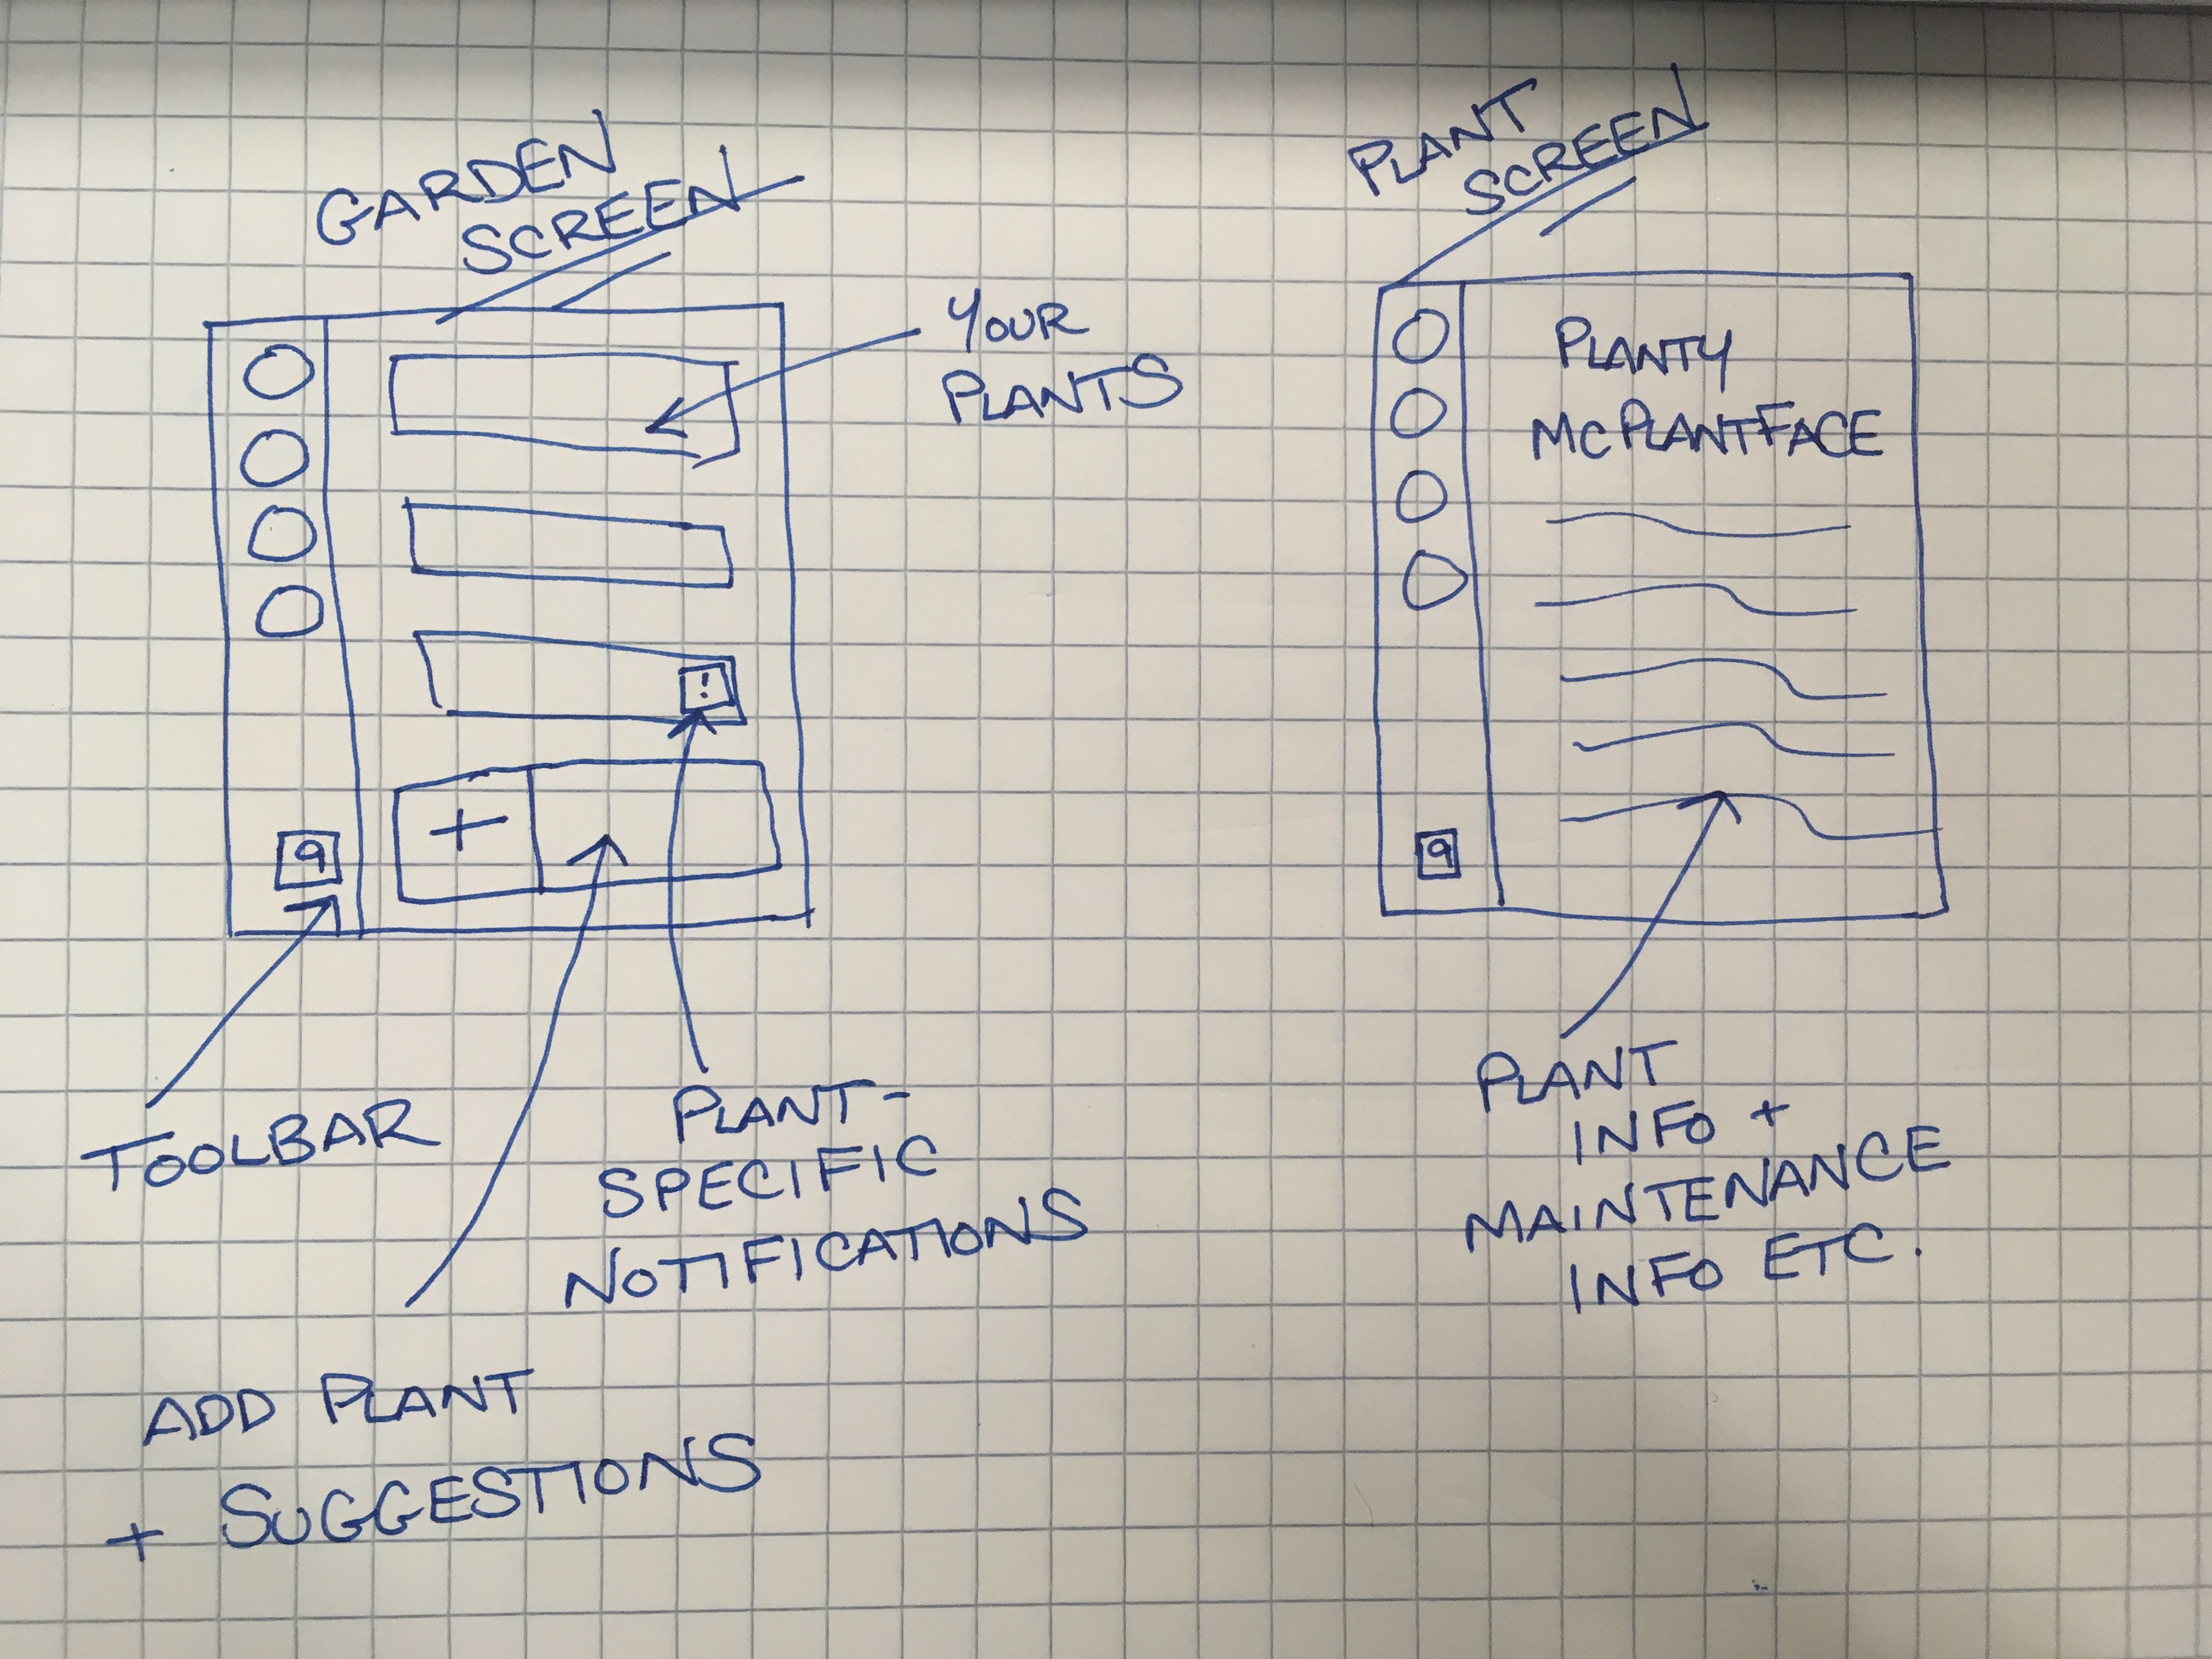 GARDEN
SCREEN
YOUR
PLANTS
!
+
9
TOOLBAR
PLANT-
SPECIFIC
NOTIFICATIONS
ADD PLANT
+ SUGGESTIONS
PLANT
SCREEN
PLANTY
MCPLANTFACE
9
PLANT
INFO +
MAINTENANCE
INFO ETC.